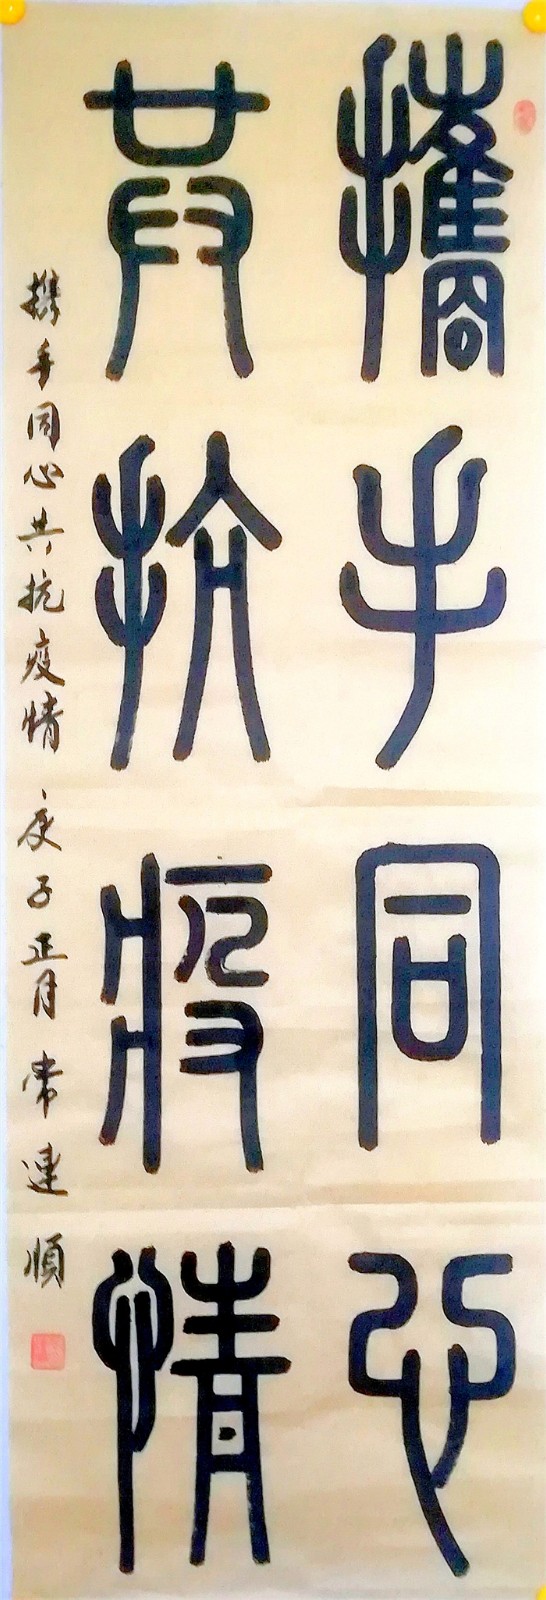 攜手同心
共抗疫情
携手同心共抗疫情 庚子正月 常連順